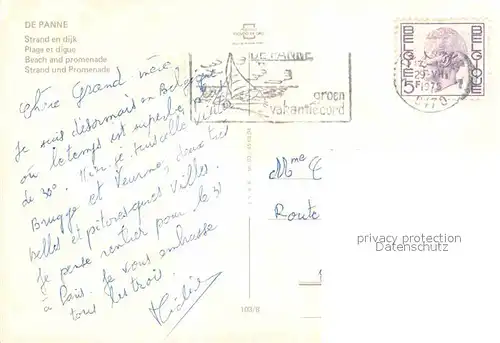 DE PANNE
Strand en dijk
Plage et digue
Beach and promenade
Strand und Promenade
Chère Grand-mère,
Je suis désormais en Belgique
où le temps est superbe
de 30°. Hier je visite
Brugge et Veurne, deux très
belles et pitoresques villes.
Je pense rentrer pour le 31
à Paris. Je vous embrasse
tous les trois.
DE PANNE
groen
vakantieoord
BELGIE
BELGIQUE
5F
1975
Mme
Route
privacy protection
Datenschutz